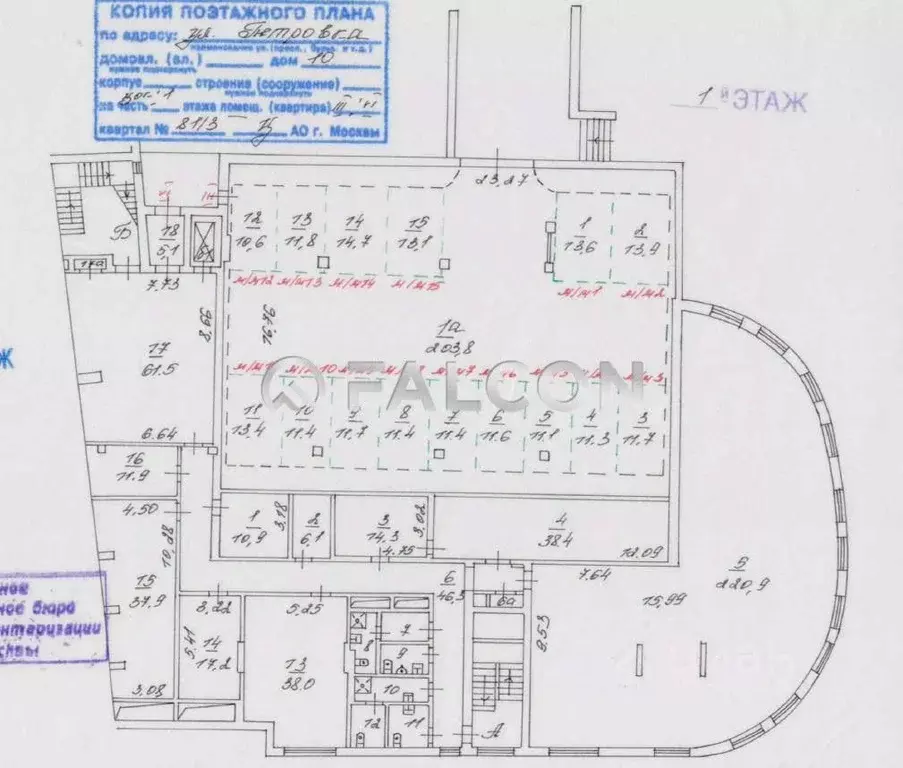 КОПИЯ ПОЭТАЖНОГО ПЛАНА
по адресу: ул. Петровка
наименование ул. (просп., бульв. и т.д.)
домовл. (вл.) дом 10
нужное подчеркнуть
корпус строение (сооружение)
нужное подчеркнуть
часть этажа помещ. (квартира) III
квартал № 81/3 Ц АО г. Москвы
1й ЭТАЖ
23,27
12 10,6
13 11,8
14 14,7
15 13,1
1 13,6
2 13,9
м/м12 м/м13 м/м14 м/м15 м/м1 м/м2
Б
18 5,1
17а
7,73
8,66
17 61.5
6.64
1а 203,8
FALCON
м/м3
11 13,4
10 11.4
11.7
8 11.4
7 11.4
6 11.6
5 11.1
4 11.3
3 11.7
16 11.9
4,50
10,28
15 37.9
3,08
1 10,9
3,18
2 6,1
3 14.3
3,02
4.75
4 38.4
12.09
7.64
5 220,9
15,99
9.53
6 46,3
6а
3,22
5.41
14 17,2
5,25
13 38.0
7
8
9
10
11
12
А
ное
ное бюро
нтаризации
сквы
Ж